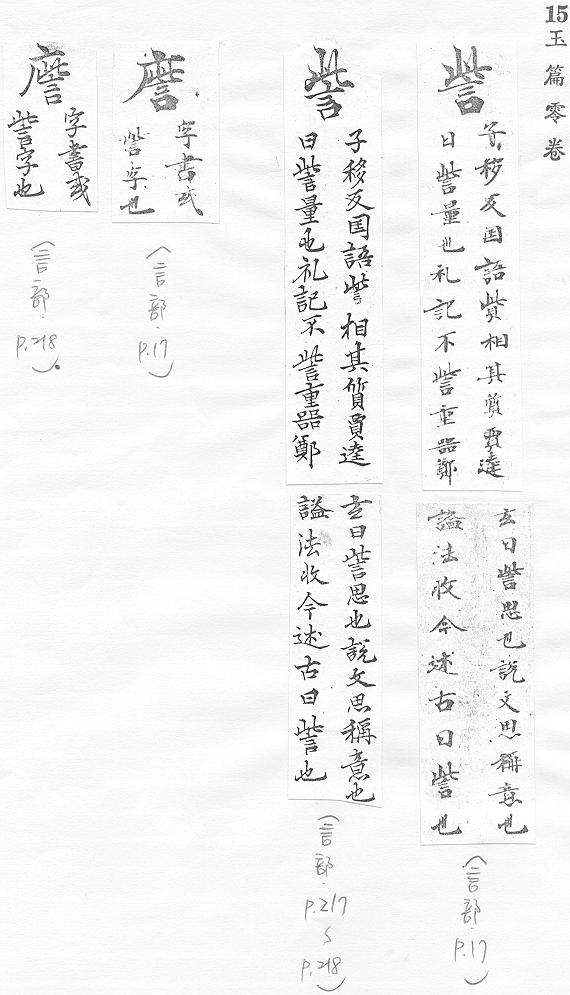 15 玉篇零卷
訾
子移反国語訾相其質賈逵
曰訾量也礼記不訾重器鄭
玄曰訾思也說文思稱意也
謚法收今述古曰訾也
(言部. P.17)
訾
子移反国語訾相其質賈逵
曰訾量也礼記不訾重器鄭
玄曰訾思也說文思稱意也
謚法收今述古曰訾也
(言部. P.217
~
P.218)
字書或
訾字也
(言部. P.17)
字書或
訾字也
(言部. P.218).